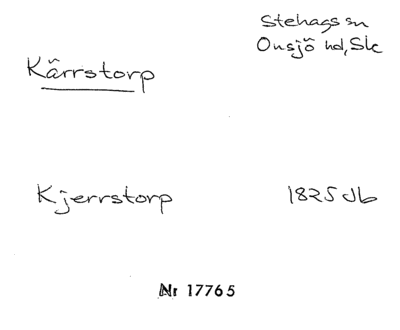 Stehags sn
Onsjö hd, Sk
Kärrstorp
Kjerrstorp 1825 Jb
Nr 17765